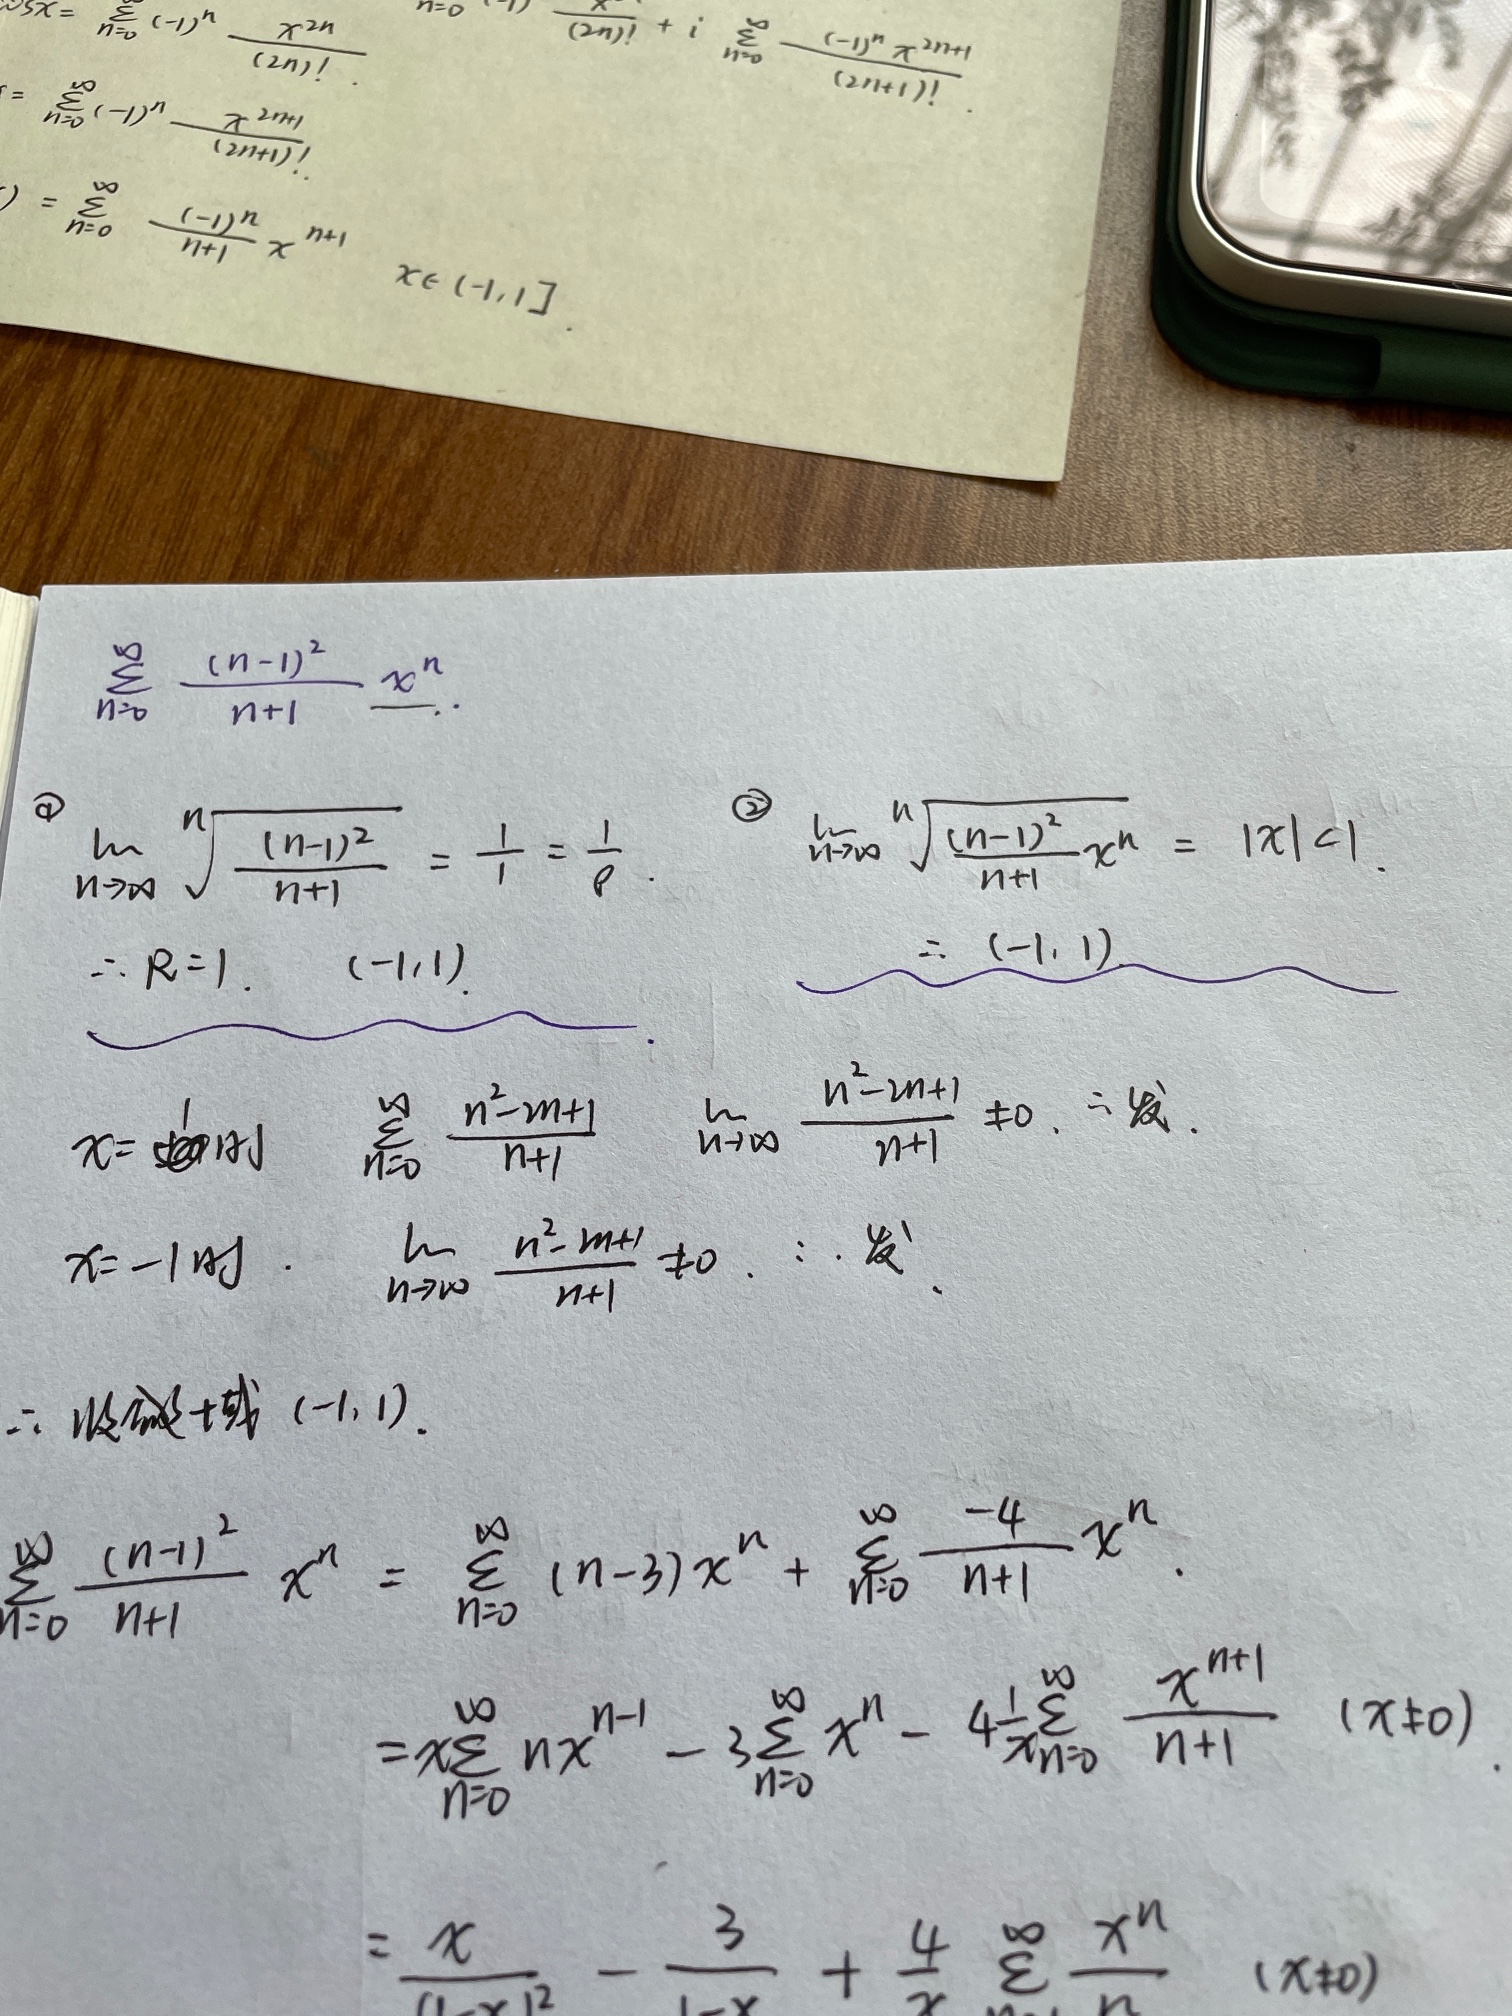 cosx = ∑_{n=0}^{∞} (-1)^n x^{2n}/(2n)!.
= ∑_{n=0}^{∞} (-1)^n x^{2n+1}/(2n+1)!.
) = ∑_{n=0}^{∞} (-1)^n/(n+1) x^{n+1}
x∈(-1,1].
n=0 (2n)! + i ∑_{n=0}^{∞} (-1)^n x^{2n+1}/(2n+1)!.
∑_{n=0}^{∞} (n-1)²/(n+1) x^n.
① lim_{n→∞} ⁿ√((n-1)²/(n+1)) = 1/1 = 1/ρ.
∴ R=1. (-1,1).
② lim_{n→∞} ⁿ√((n-1)²/(n+1) x^n) = |x|<1.
∴ (-1,1)
x=1时 ∑_{n=0}^{∞} (n²-2n+1)/(n+1) lim_{n→∞} (n²-2n+1)/(n+1) ≠0. ∴发.
x=-1时. lim_{n→∞} (n²-2n+1)/(n+1) ≠0. ∴发.
∴ 收敛域 (-1,1).
∑_{n=0}^{∞} (n-1)²/(n+1) x^n = ∑_{n=0}^{∞} (n-3)x^n + ∑_{n=0}^{∞} -4/(n+1) x^n.
= x∑_{n=0}^{∞} nx^{n-1} - 3∑_{n=0}^{∞} x^n - 4 1/x ∑_{n=0}^{∞} x^{n+1}/(n+1) (x≠0).
= x/(1-x)² - 3/(1-x) + 4/x ∑^{∞} x^n/n (x≠0)